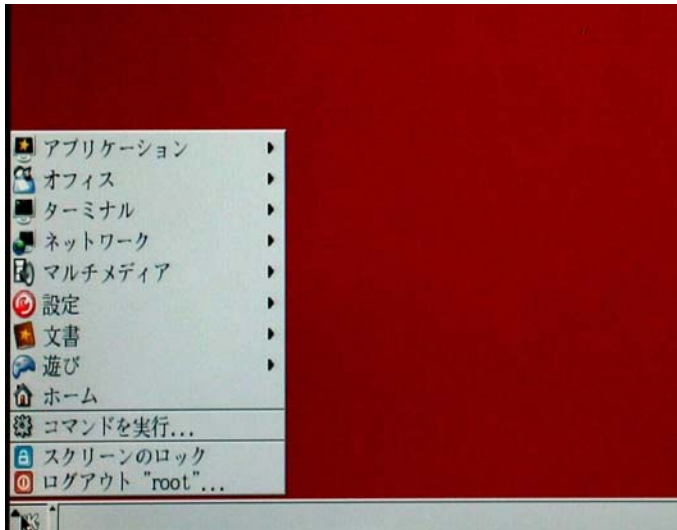 アプリケーション
オフィス
ターミナル
ネットワーク
マルチメディア
設定
文書
遊び
ホーム
コマンドを実行...
スクリーンのロック
ログアウト "root"...